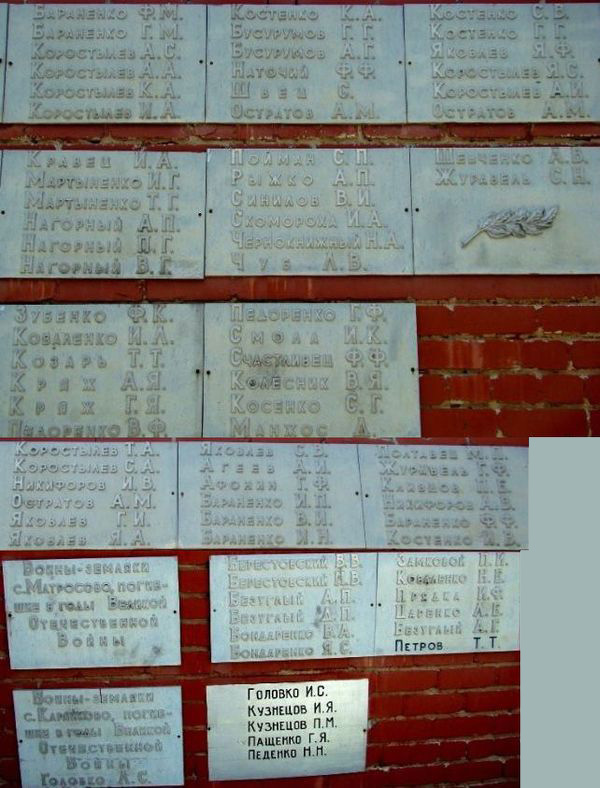 Бараненко Ф.М.
Бараненко Г.М.
Коростылев А.С.
Коростылев А.А.
Коростылев К.А.
Коростылев И.А.
Костенко К.А.
Бусурумов Г.Г.
Бусурумов А.Г.
Наточий Ф.Ф.
Швец С.
Остратов А.М.
Костенко С.В.
Костенко Г.Г.
Яковлев Я.Ф.
Коростылев Я.С.
Коростылев А.И.
Остратов А.М.
Кравец И.А.
Мартыненко И.Г.
Мартыненко Т.Г.
Нагорный А.П.
Нагорный П.Г.
Нагорный В.Г.
Пойман С.П.
Рыжко А.П.
Синилов В.И.
Скомороха И.А.
Чернокнижный Н.А.
Чуб Л.В.
Шевченко А.В.
Журавель С.Н.
Зубенко Ф.К.
Коваленко И.Л.
Козарь Т.Т.
Кряж А.Я.
Кряж Г.Я.
Педоренко В.Ф.
Педоренко Г.Ф.
Смола И.К.
Счастливец Ф.Ф.
Колесник В.Я.
Косенко С.Г.
Манжос Д.
Коростылев Т.А.
Коростылев С.А.
Никифоров И.В.
Остратов А.М.
Яковлев Г.И.
Яковлев Я.А.
Яковлев С.В.
Агеев А.И.
Афонин Т.Ф.
Бараненко И.П.
Бараненко В.И.
Бараненко И.Н.
Полтавец М.П.
Журавель Г.Ф.
Кливцов П.Е.
Никифоров А.В.
Бараненко Ф.Ф.
Костенко И.В.
Воины-земляки
с. Матросово, погиб-
шие в годы Великой
Отечественной
Войны
Берестовский В.В.
Берестовский Н.В.
Безуглый А.П.
Безуглый Д.П.
Бондаренко В.А.
Бондаренко Я.С.
Замковой П.И.
Коваленко Н.Е.
Прядка И.Ф.
Царенко А.Е.
Безуглый А.Г.
Петров Т.Т.
Воины-земляки
с. Карайково, погиб-
шие в годы Великой
Отечественной
Войны
Головко А.С.
Головко И.С.
Кузнецов И.Я.
Кузнецов П.М.
Пащенко Г.Я.
Педенко Н.Н.